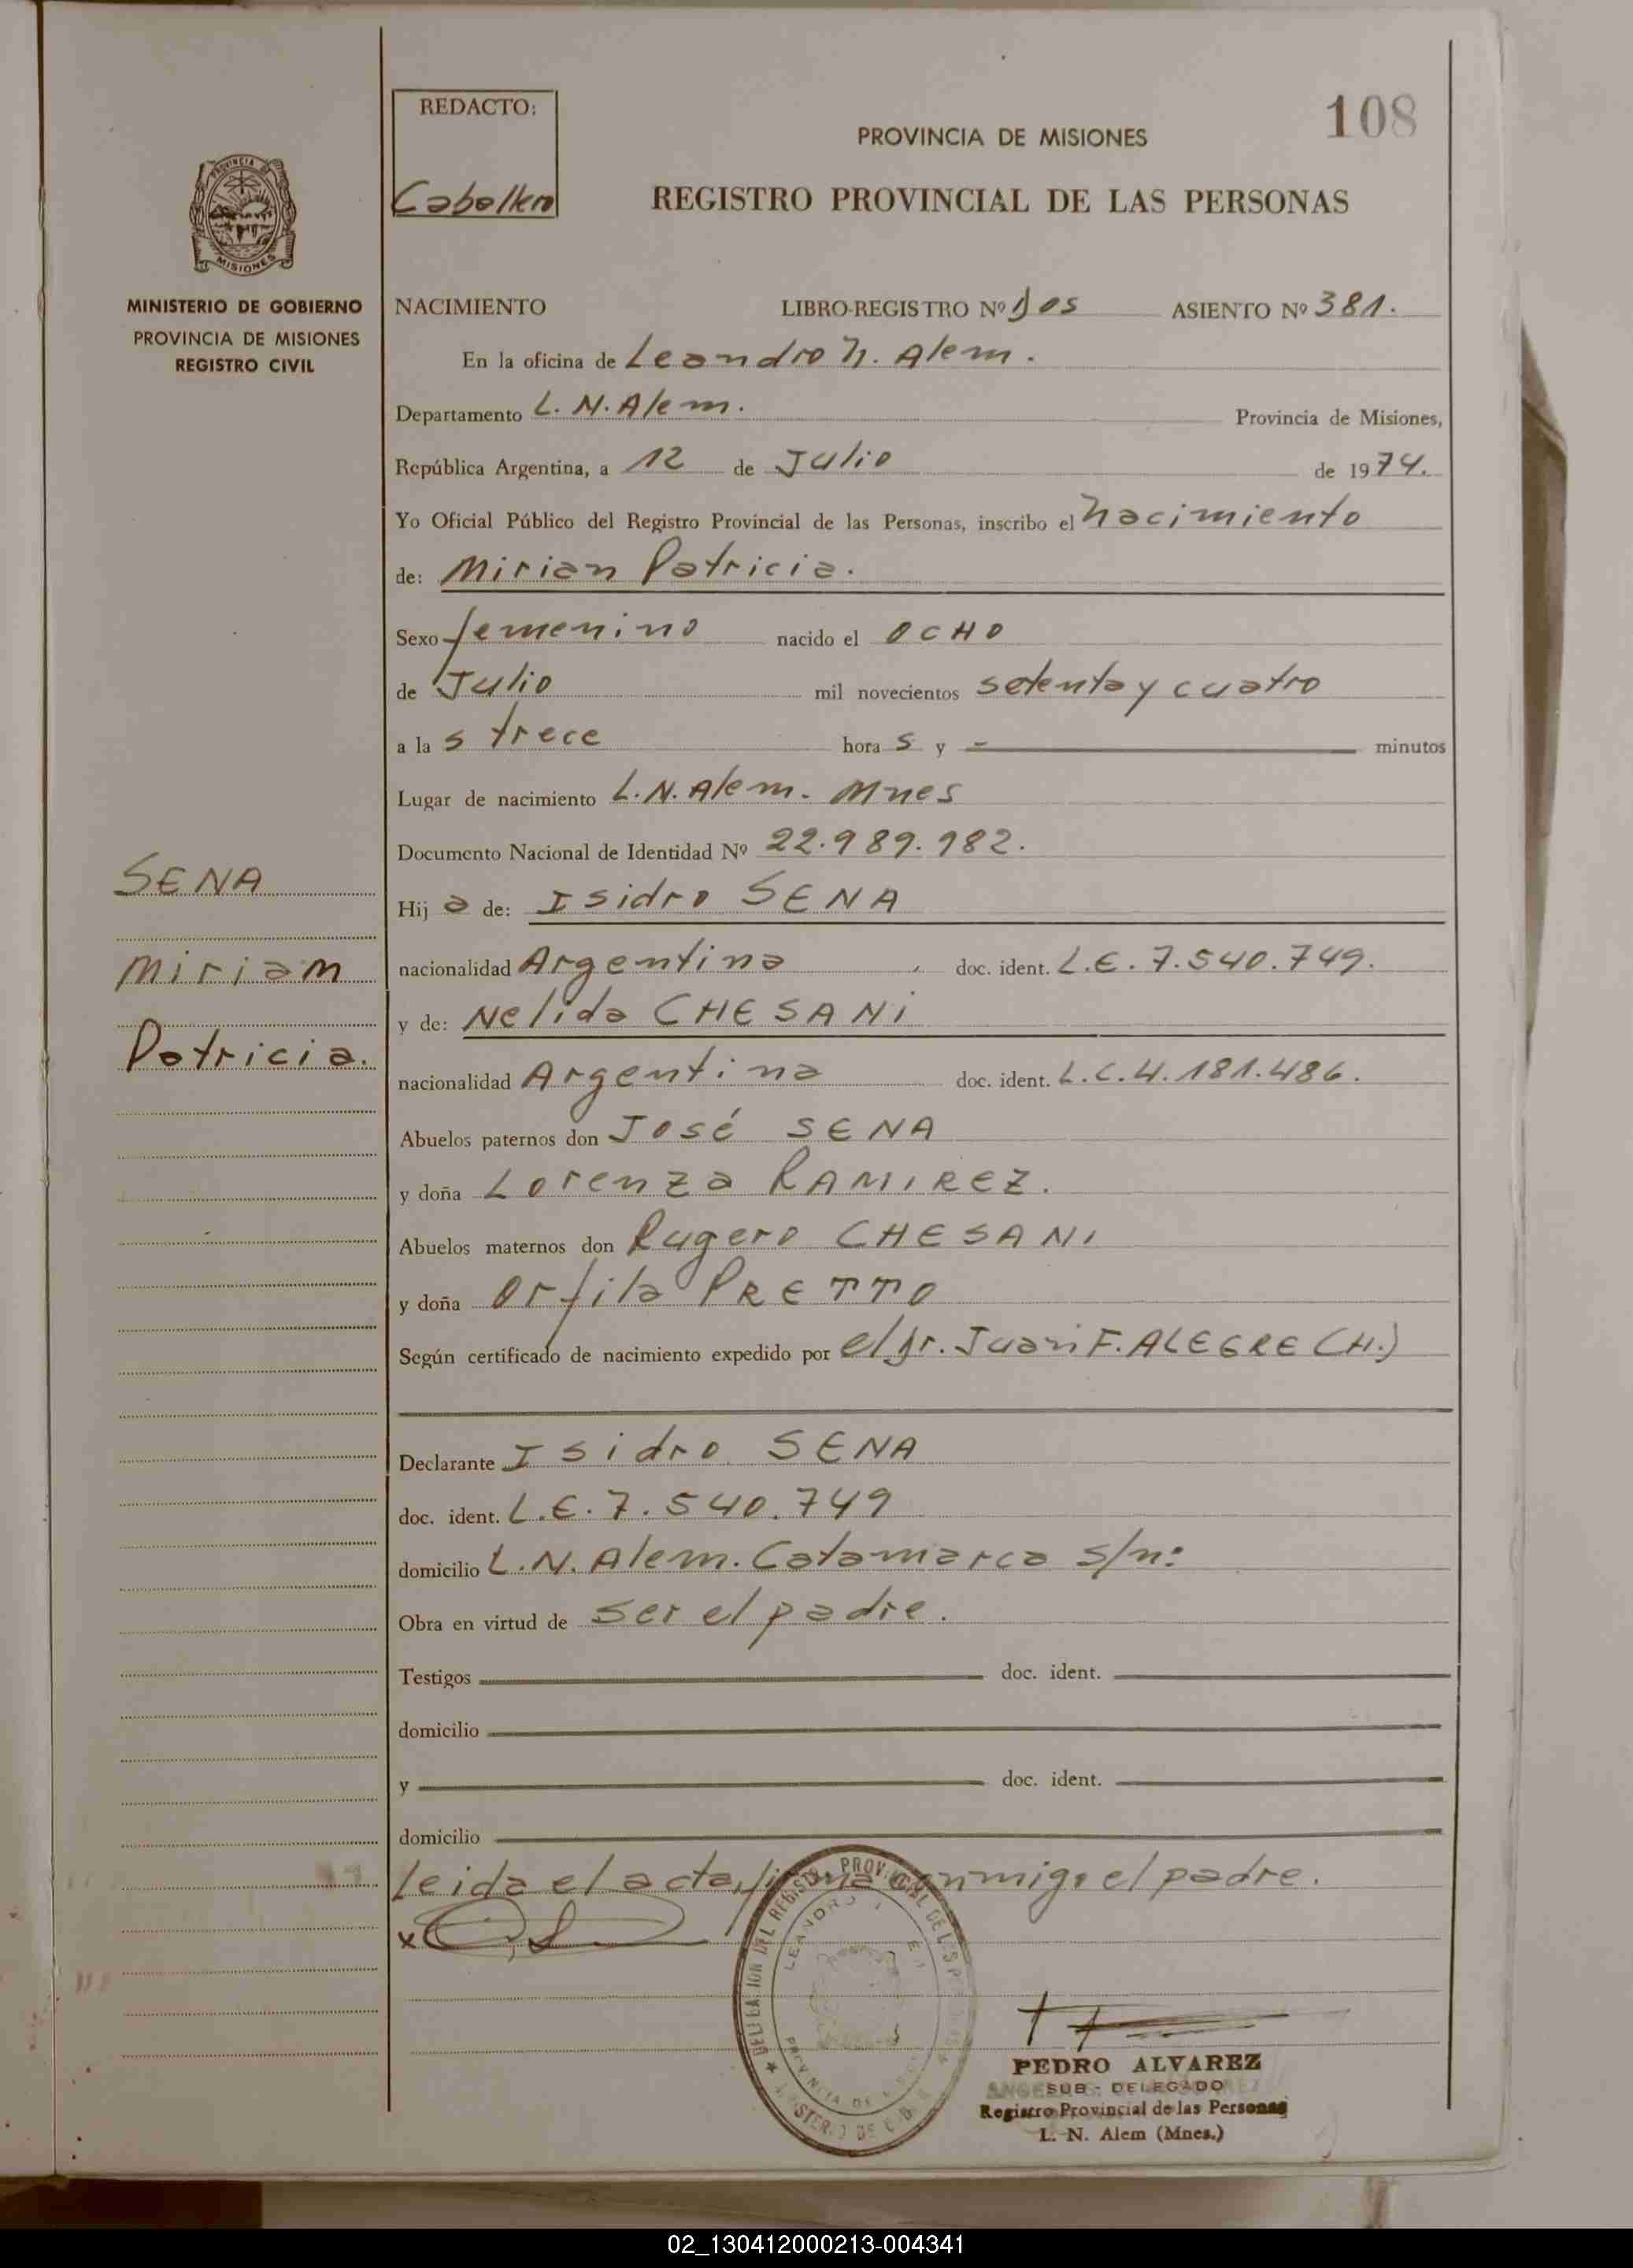 REDACTO:
Caballero
108
PROVINCIA DE MISIONES
REGISTRO PROVINCIAL DE LAS PERSONAS
PROVINCIA DE
MISIONES
MINISTERIO DE GOBIERNO
PROVINCIA DE MISIONES
REGISTRO CIVIL
NACIMIENTO LIBRO-REGISTRO Nº Dos ASIENTO Nº 381.
En la oficina de Leandro N. Alem.
Departamento L. N. Alem. Provincia de Misiones,
República Argentina, a 12 de Julio de 1974.
Yo Oficial Público del Registro Provincial de las Personas, inscribo el nacimiento
de: Mirian Patricia.
Sexo femenino nacido el OCHO
de Julio mil novecientos setenta y cuatro
a las trece horas y - minutos
Lugar de nacimiento L.N. Alem. Mnes
Documento Nacional de Identidad Nº 22.989.982.
SENA
Miriam
Patricia.
Hija de: Isidro SENA
nacionalidad Argentina doc. ident. L.E. 7.540.749.
y de: Nelida CHESANI
nacionalidad Argentina doc. ident. L.C. 4.181.486.
Abuelos paternos don José SENA
y doña Lorenza RAMIREZ.
Abuelos maternos don Rugero CHESANI
y doña Orfila PRETTO
Según certificado de nacimiento expedido por el Dr. Juan F. ALEGRE (H.)
Declarante Isidro SENA
doc. ident. L.E. 7.540.749
domicilio L.N. Alem. Catamarca s/n:
Obra en virtud de ser el padre.
Testigos doc. ident.
domicilio
y doc. ident.
domicilio
Leida el acta, firma conmigo el padre.
x
PEDRO ALVAREZ
SUB - DELEGADO
Registro Provincial de las Personas
L. N. Alem (Mnes.)
02_130412000213-004341